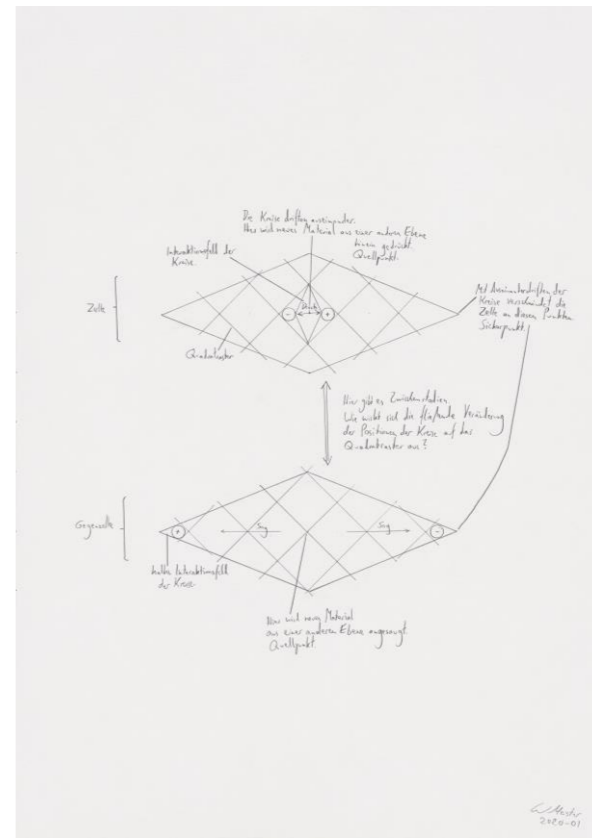 Die Kreise driften auseinander.
Hier wird neues Material aus einer anderen Ebene
hinein gedrückt.
Quellpunkt.
Interaktionsfeld der
Kreise.
Zelle
Druck
-
+
Quadratraster
Mit Auseinanderdriften der
Kreise verschwindet die
Zelle an diesen Punkten
Sickerpunkt.
Hier gibt es Zwischenstadien.
Wie wirkt sich die fließende Veränderung
der Positionen der Kreise auf das
Quadratraster aus?
Gegenzelle
+
Sog
Sog
-
halbes Interaktionsfeld
der Kreise
Hier wird neues Material
aus einer anderen Ebene angesaugt.
Quellpunkt.
2020-01